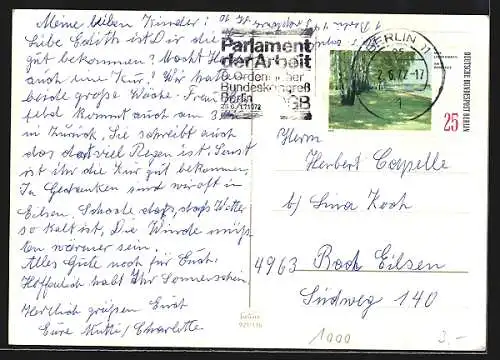 Meine lieben Kinder!
Liebe Edith ist Dir die
gut bekommen? Macht H
auch eine Kur! Wir hatte
beide große Wäsche. Frau
feld kommt auch am 3.
in Zürich. Sie schreibt auch
das dort viel Regen ist. Sonst
ist ihr die Kur gut bekommen,
In Gedanken sind wir oft in
Eilsen. Schade daß, daß Wetter
so kalt ist. Die Winde müß
ten wärmer sein.
Alles Gute noch für Euch.
Hoffentlich habt Ihr Sonnenschein
Herzlich grüßen Euch
Eure Mutti, Charlotte
1 Berlin
Parlament
der Arbeit
9. Ordentlicher
Bundeskongreß
Berlin
25.6.-1.7.1972 DGB
BERLIN 11
2.6.72-17
1
DEUTSCHE BUNDESPOST BERLIN
25
Herrn
Herbert Capelle
b) Lina Koch
4963 Bad Eilsen
Südweg 140
1000
3,-